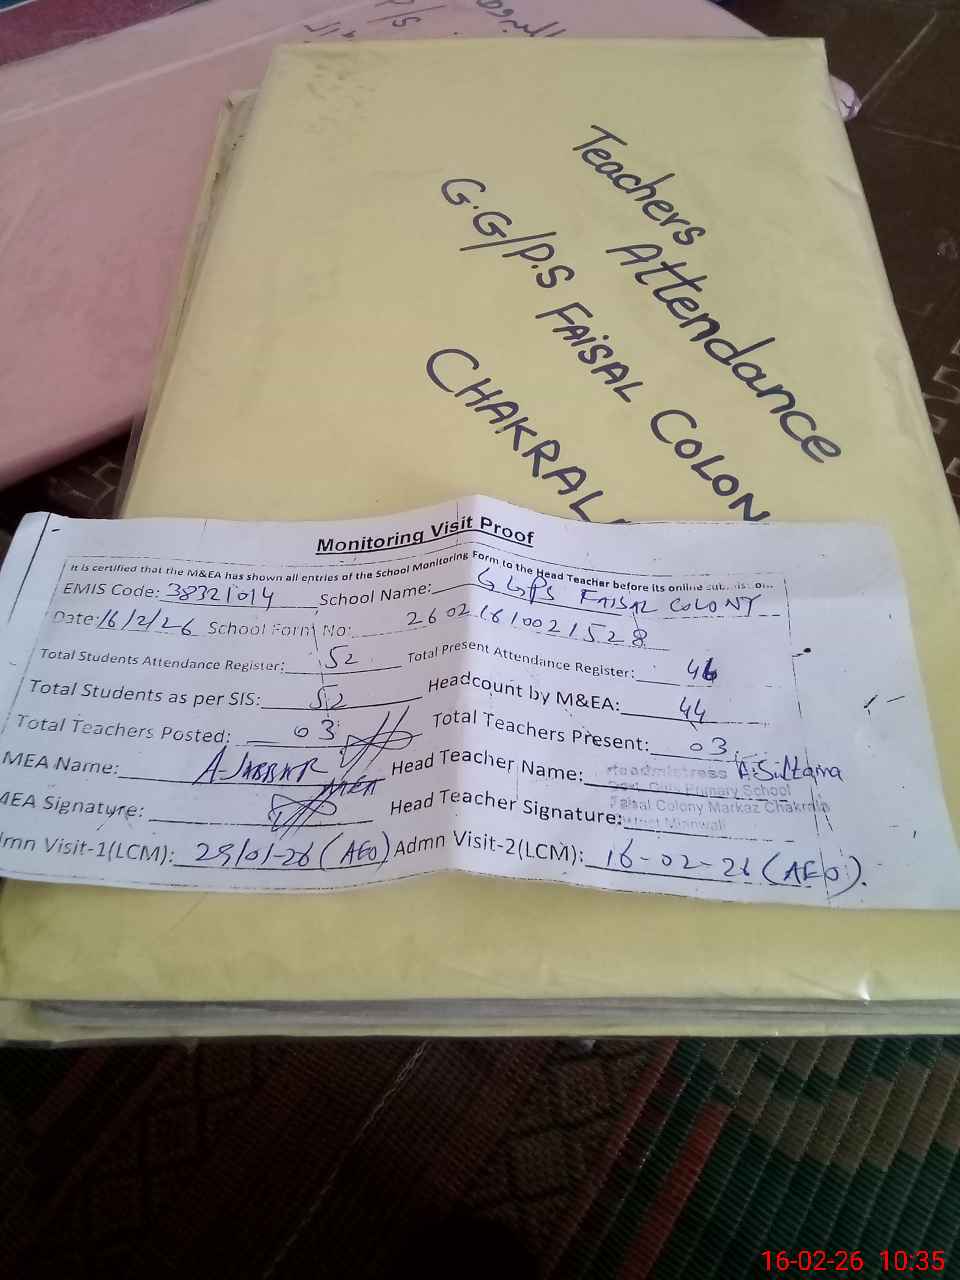 Teachers Attendance
G.G/P.S FAISAL COLON
CHAKRAL
Monitoring Visit Proof
It is certified that the M&EA has shown all entries of the School Monitoring Form to the Head Teacher before its online
EMIS Code: 38321014 School Name: GGPS FAISAL COLONY
Date: 16/2/26 School Form No: 26021610021528
Total Students Attendance Register: 52 Total Present Attendance Register: 46
Total Students as per SIS: 52 Headcount by M&EA: 44
Total Teachers Posted: 03 Total Teachers Present: 03
MEA Name: A-JABBAR MEA Head Teacher Name: A.Sultana
Headmistress
Govt. Girls Primary School
Faisal Colony Markaz Chakrala
District Mianwali
MEA Signature: Head Teacher Signature:
Admn Visit-1(LCM): 29/01-26 (AEO) Admn Visit-2(LCM): 16-02-26 (AEO).
16-02-26 10:35